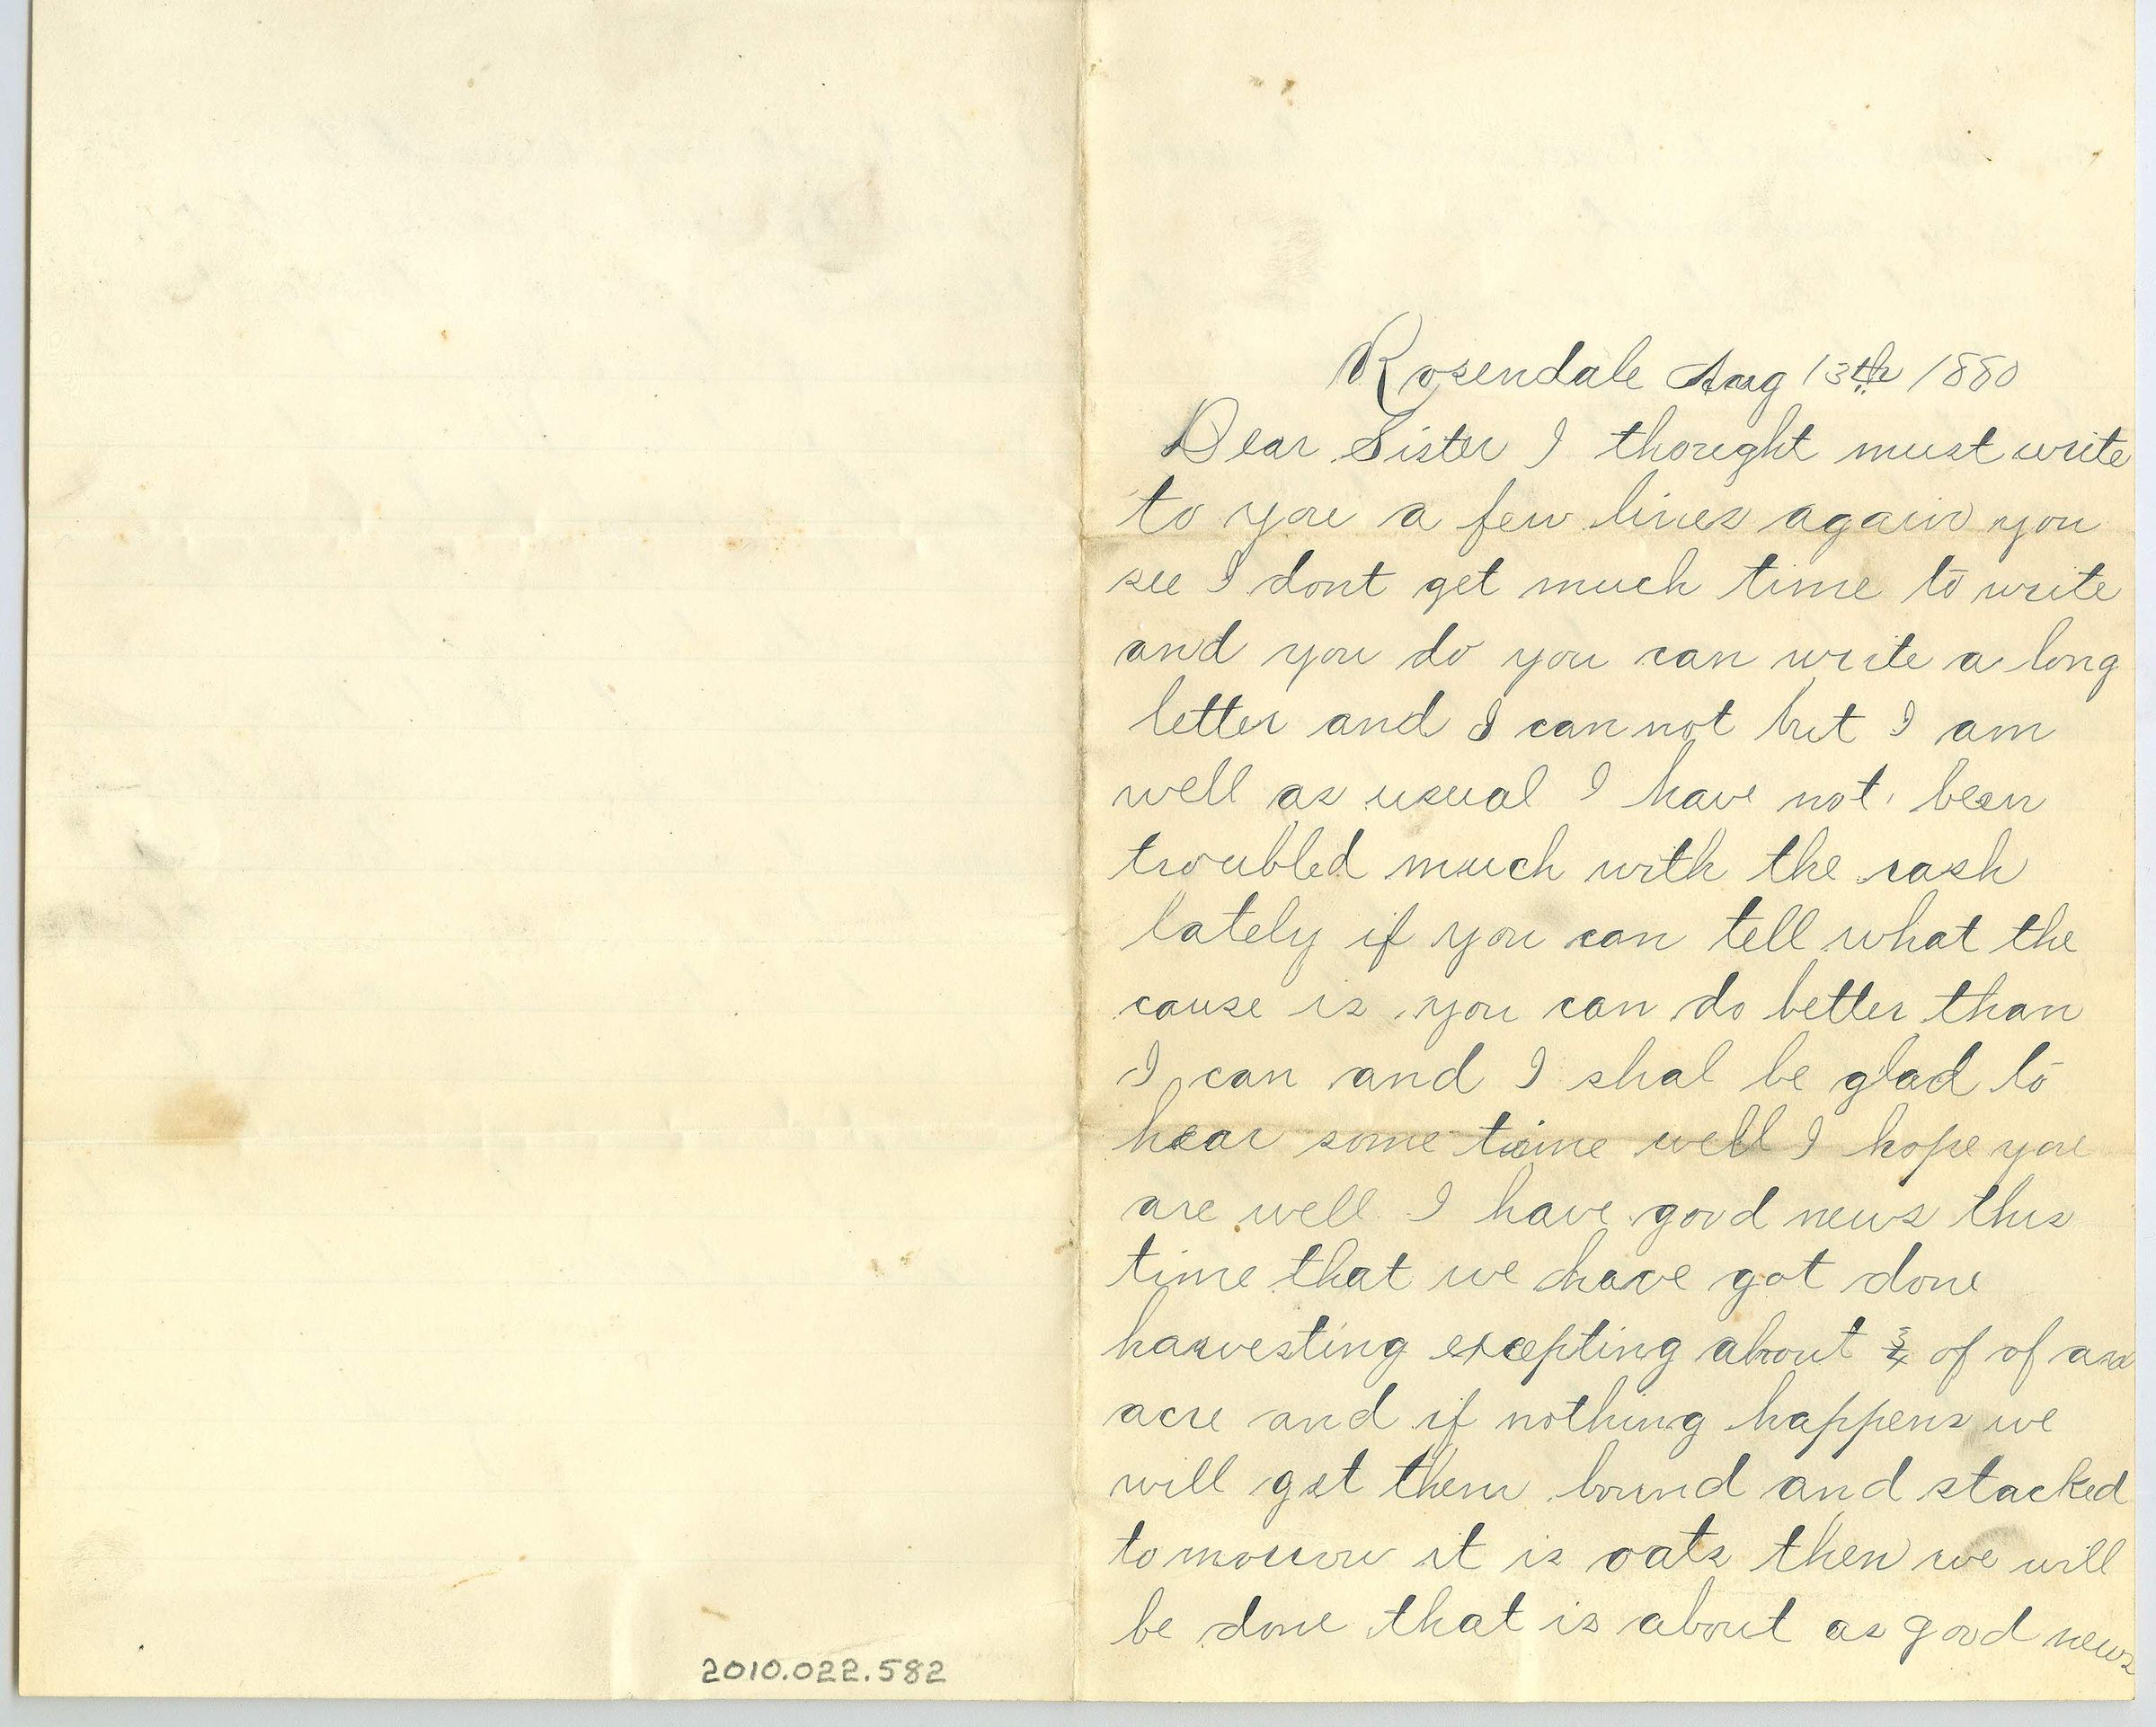 Rosendale Aug 13th 1880
Dear Sister I thought must write
to you a few lines again you
see I dont get much time to write
and you do you can write a long
letter and I can not but I am
well as usual I have not been
troubled much with the rash
lately if you can tell what the
cause is you can do better than
I can and I shal be glad to
hear some time well I hope you
are well I have good news this
time that we have got done
harvesting excepting about 3/4 of of an
acre and if nothing happens we
will get them bound and stacked
to morrow it is oats then we will
be done that is about as good news
2010.022.582